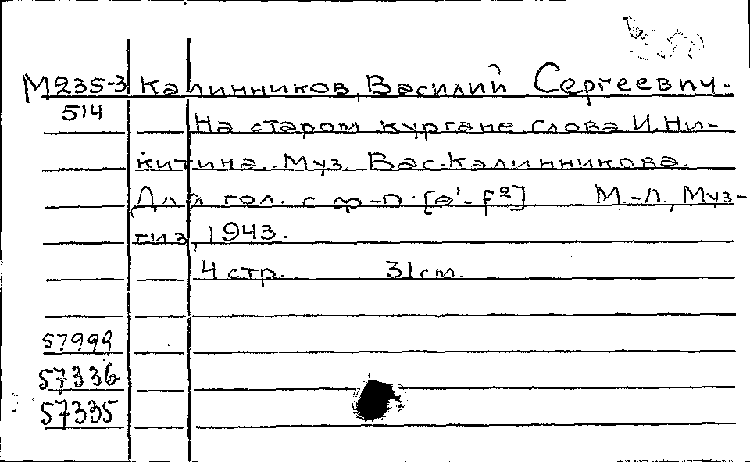 М235-3 Калинников, Василий Сергеевич.
514
На старом кургане. Слова И. Ни-
китина. Муз. Вас. Калинникова.
Для гол. с ф-п. [e¹-f²] М.-Л., Муз-
гиз, 1943.
4 стр. 31 см.
57999
57336
57335